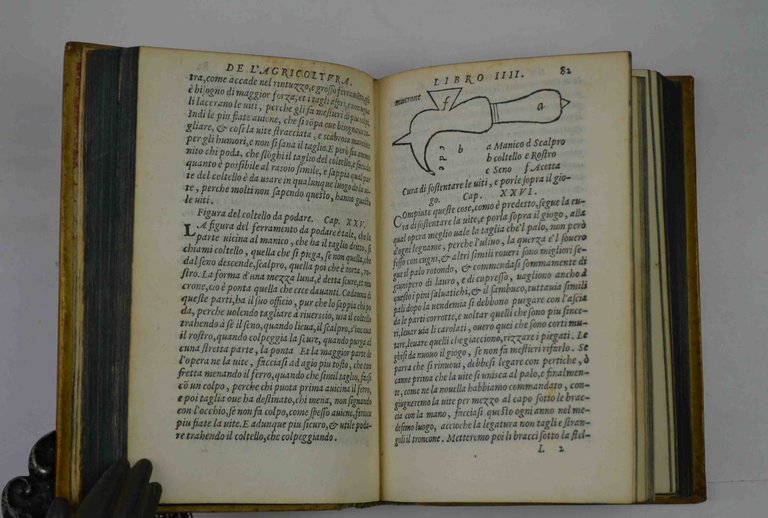 DE L'AGRICOLTVRA.
tra, come accade nel rintuzzo, e grosso ferramẽto, gli
è bisogno di maggior forza, et i tagli aspri, e non equa
li lacerano le uiti, perche gli fa mestieri di piu colpi.
Indi le piu fiate auiene, che si rõpa oue bisognaua ta
gliare, & così la uite stracciata, e scabrosa marcisce
per gli humori, e non si sana il taglio. E però sia amo
nito chi poda, che slõghi il taglio del coltello, e facciasi
quanto è possibile al rasoio simile, e sappia qual par
te del coltello è da usare in qualunque luogo de la ui-
te, perche molti non sapendo questo, hanno guasto
le uiti.
Figura del coltello da podare. Cap. XXV.
LA figura del ferramento da podare è tale, che la
parte uicina al manico, che ha il taglio dritto, si
chiami coltello, quella che si piega, se non quella, che
dal seno descende, scalpro, quella poi che è torta, ro-
stro. La forma d'una mezza luna, è detta scure, et mu
crone, cio è ponta quella che esce dauanti. Cadauna di
queste parti, ha il suo officio, pur che lo sappia chi po
da, perche uolendo tagliare à riuerscio, usa il coltello
trahendo à se il seno, quando lieua, il scalpro, quando
il rostro, quando colpeggia la scure, quando purga al
cuna stretta parte, la ponta Et la maggior parte de
l'opera ne la uite, facciasi ad agio piu tosto, che con
fretta menando il ferro, quando che simil taglio, fassi
cõ un colpo, perche chi puota prima auuiccina il ferro,
e poi taglia oue ha destinato, chi mena, non segnando
con l'occhio, se non fa colpo, come spesso auiene, ferisce
piu fiate la uite. E adunque piu sicuro, & utile poda-
re trahendo il coltello, che colpeggiando.
LIBRO IIII. 82
mucrone
f
a
b
c
d
e
a Manico d Scalpro
b coltello e Rostro
c Seno f Acetta
Cura di sostentare le uiti, e porle sopra il gio-
go. Cap. XXVI.
Compiute queste cose, como è predetto, segue la cu
ra di sostentare la uite, e porla sopra il giogo, alla
qual opera meglio uale la taglia ch'l palo, non però
d'ogni legname, perche l'uliuo, la querza è'l souero
fessi con cugni, & altri simili roueri sono migliori, se-
gue il palo rotondo, & commendasi sommamente di
ginipero di lauro, e di cupresso, uagliono ancho à
questo i pini saluatichi, & il sambuco, tuttauia simili
pali dopo la uendemia si debbono purgar con l'ascia
da le parti corrotte, e uoltar quelli che son piu since-
ri, leuar uia li carolati, ouero quei che son corti mu-
tare, quelli che giacciono, rizzare i piegati. Le
ghisi da nuouo il giogo, se non fa mestieri rifarlo. Se
pare che si rinoui, debbesi legare con pertiche, ò
canne prima che la uite si unisca al palo, e finalmen-
te, come ne la nouella habbiamo commandato, con-
giugneremo la uite per mezzo al capo sotto le brac
cia con la mano, facciasi questo ogni anno nel me-
desimo luogo, accioche la legatura non tagli e stran-
goli il troncone. Metteremo poi li bracci sotto la stel-
L 2